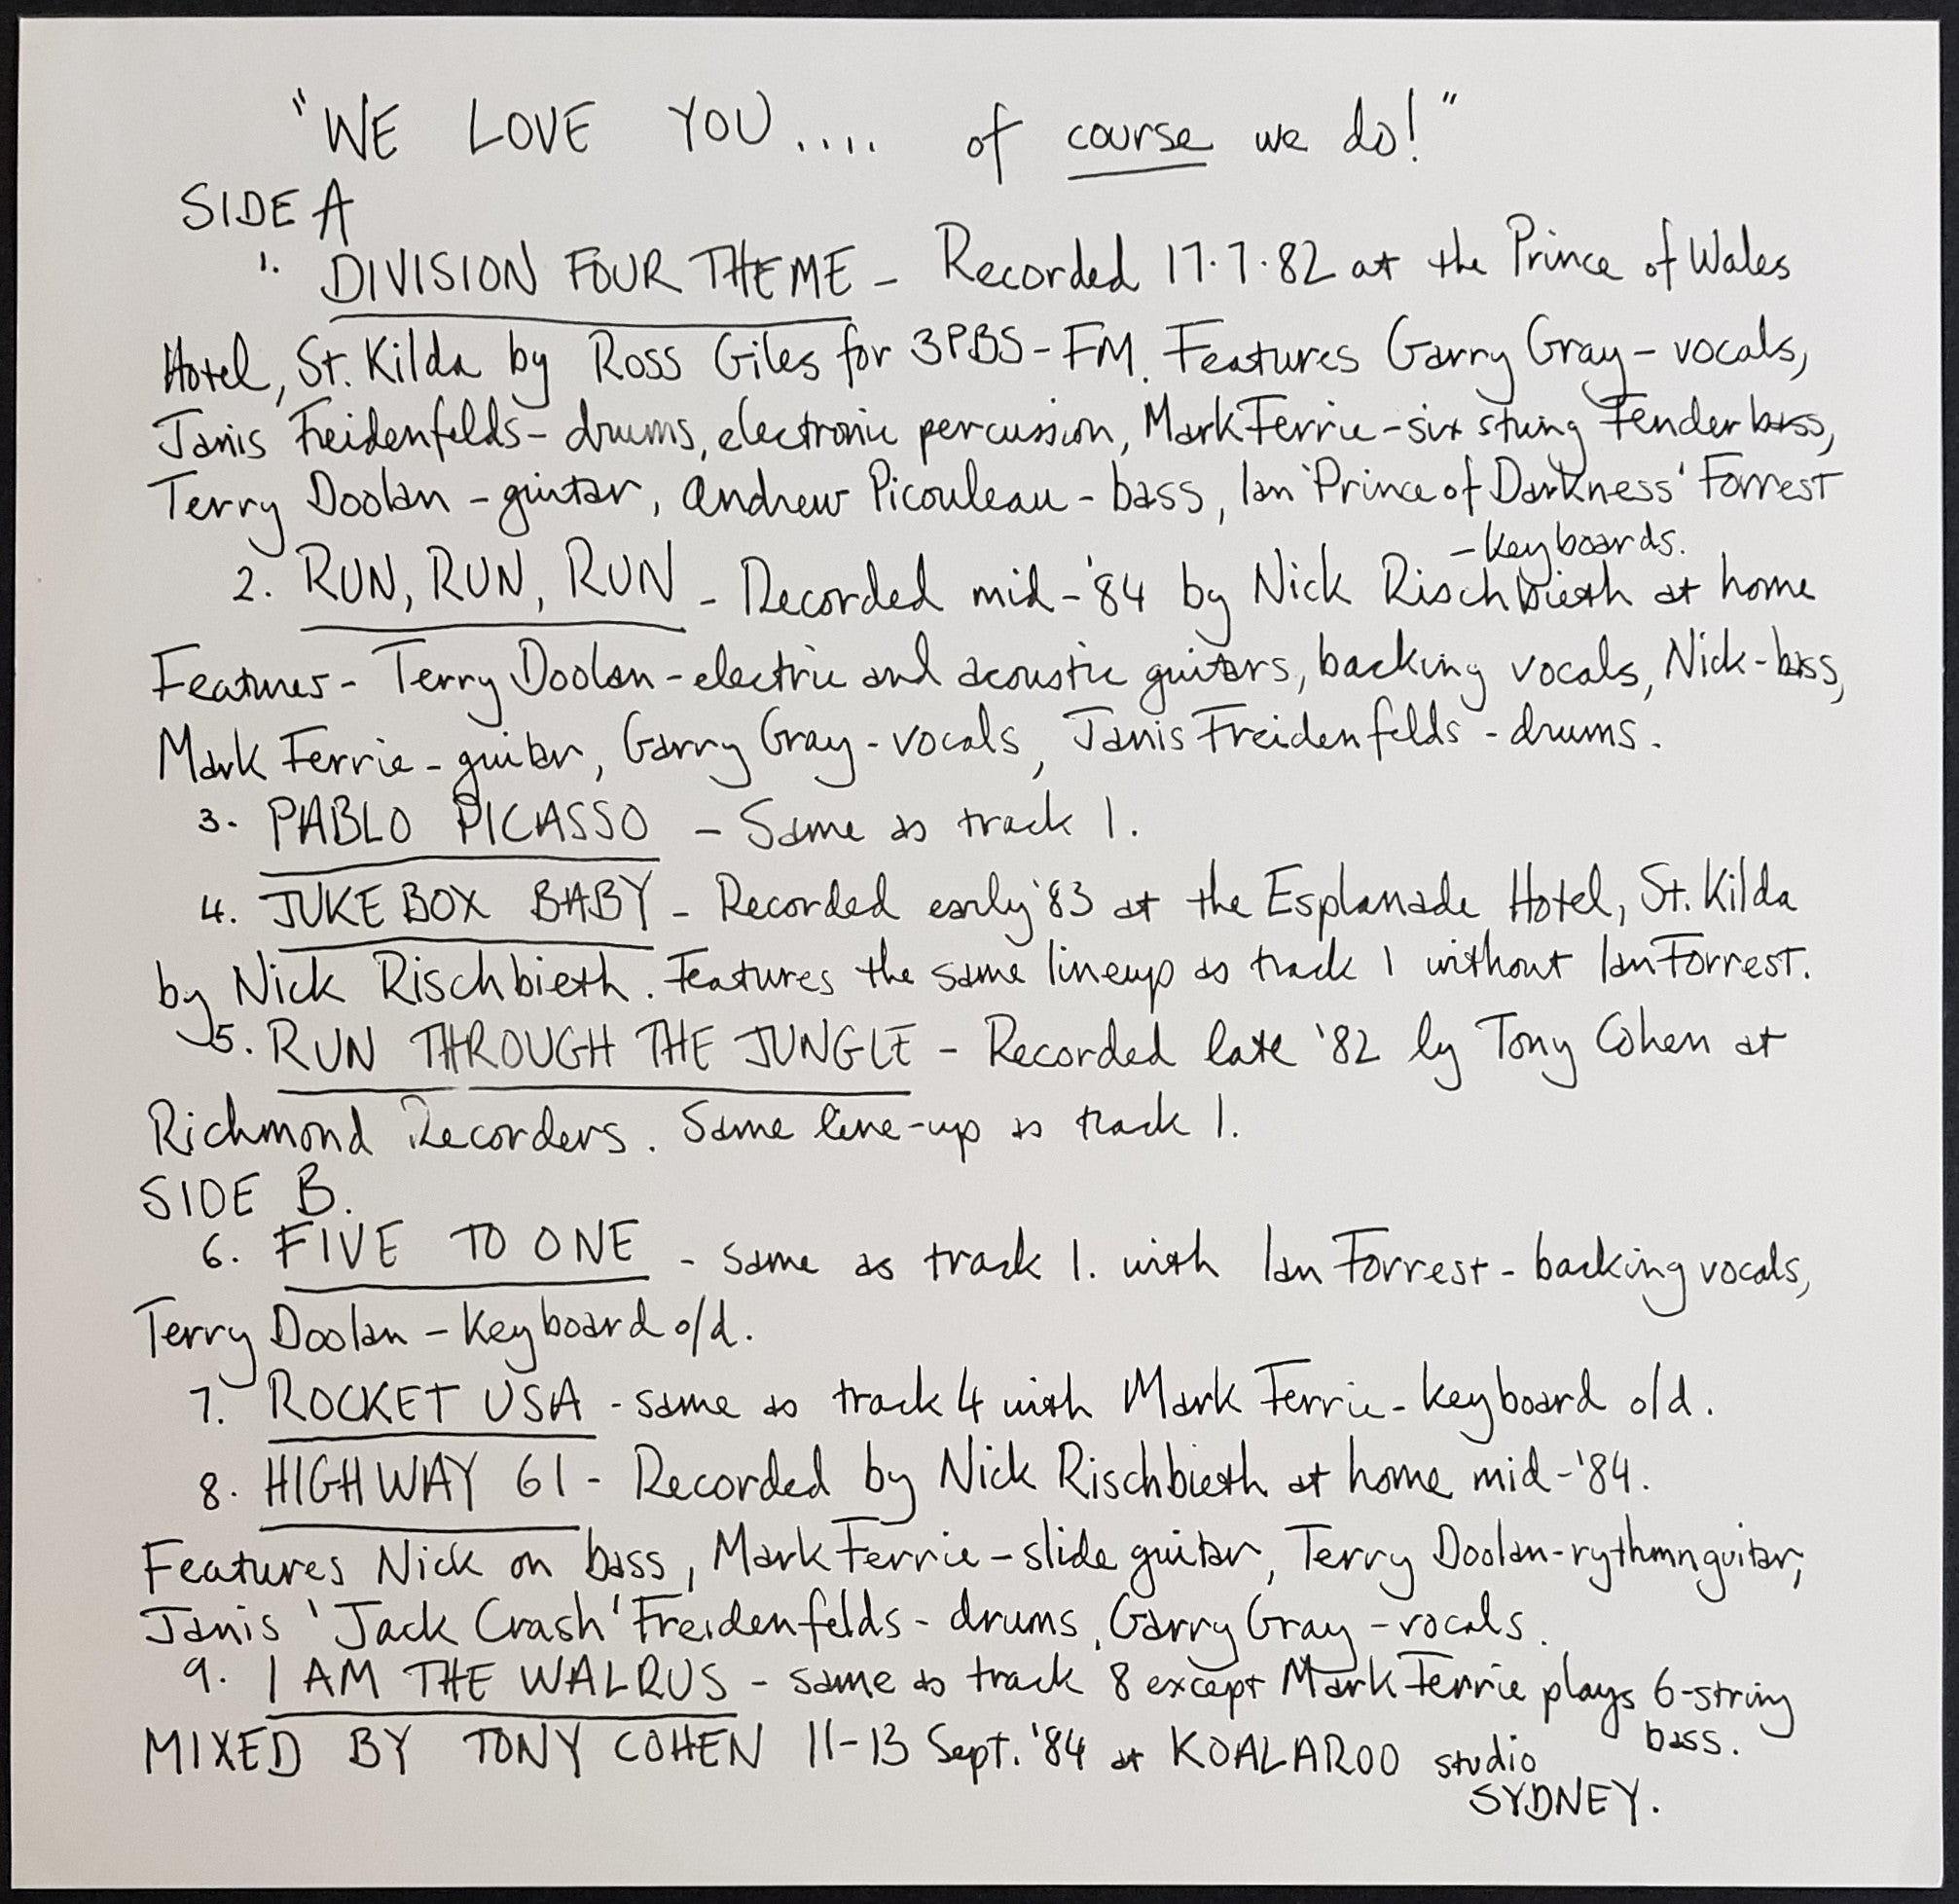 "WE LOVE YOU.... of course we do!"
SIDE A
1. DIVISION FOUR THEME - Recorded 17.7.82 at the Prince of Wales
Hotel, St. Kilda by Ross Giles for 3PBS-FM. Features Garry Gray - vocals,
Janis Freidenfelds - drums, electronic percussion, Mark Ferrie - six string Fender bass,
Terry Doolan - guitar, Andrew Picouleau - bass, Ian 'Prince of Darkness' Forrest
- keyboards.
2. RUN, RUN, RUN - Recorded mid-'84 by Nick Rischbieth at home
Features - Terry Doolan - electric and acoustic guitars, backing vocals, Nick - bass,
Mark Ferrie - guitar, Garry Gray - vocals, Janis Freidenfelds - drums.
3. PABLO PICASSO - Same as track 1.
4. JUKE BOX BABY - Recorded early '83 at the Esplanade Hotel, St. Kilda
by Nick Rischbieth. Features the same lineup as track 1 without Ian Forrest.
5. RUN THROUGH THE JUNGLE - Recorded late '82 by Tony Cohen at
Richmond Recorders. Same line-up as track 1.
SIDE B.
6. FIVE TO ONE - same as track 1. with Ian Forrest - backing vocals,
Terry Doolan - Keyboard o/d.
7. ROCKET USA - same as track 4 with Mark Ferrie - keyboard o/d.
8. HIGHWAY 61 - Recorded by Nick Rischbieth at home mid-'84.
Features Nick on bass, Mark Ferrie - slide guitar, Terry Doolan - rythmn guitar,
Janis 'Jack Crash' Freidenfelds - drums, Garry Gray - vocals.
9. I AM THE WALRUS - same as track 8 except Mark Ferrie plays 6-string
bass.
MIXED BY TONY COHEN 11-13 Sept. '84 at KOALAROO studio
SYDNEY.